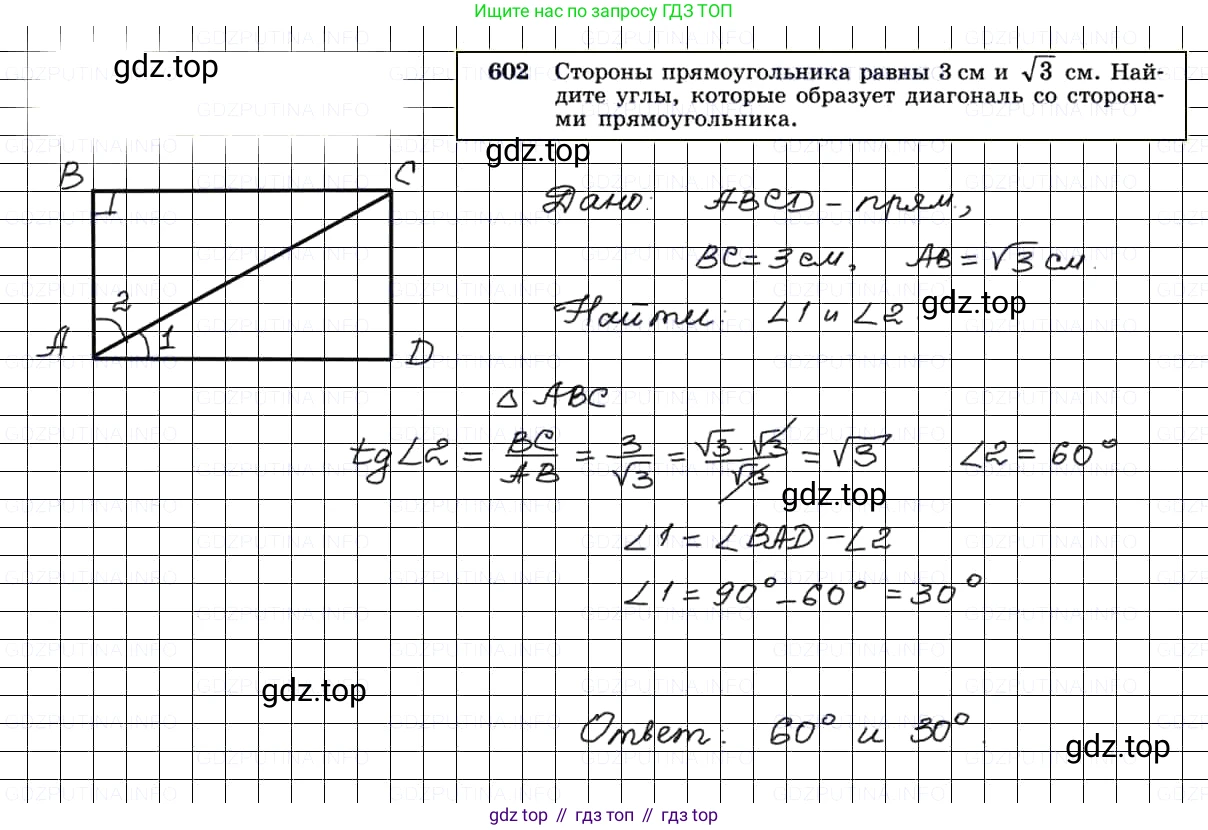 Ищите нас по запросу ГДЗ ТОП
gdz.top
602 Стороны прямоугольника равны 3 см и √3 см. Най-
дите углы, которые образует диагональ со сторона-
ми прямоугольника.
gdz.top
B C
Дано: ABCD – прям.,
BC = 3 см, AB = √3 см.
Найти: ∠1 и ∠2
gdz.top
2
A 1 D
△ ABC
tg∠2 = BC/AB = 3/√3 = √3·√3/√3 = √3 ∠2 = 60°
gdz.top
∠1 = ∠BAD – ∠2
∠1 = 90° – 60° = 30°
gdz.top
Ответ: 60° и 30°.
gdz.top
gdz top // гдз топ // гдз top